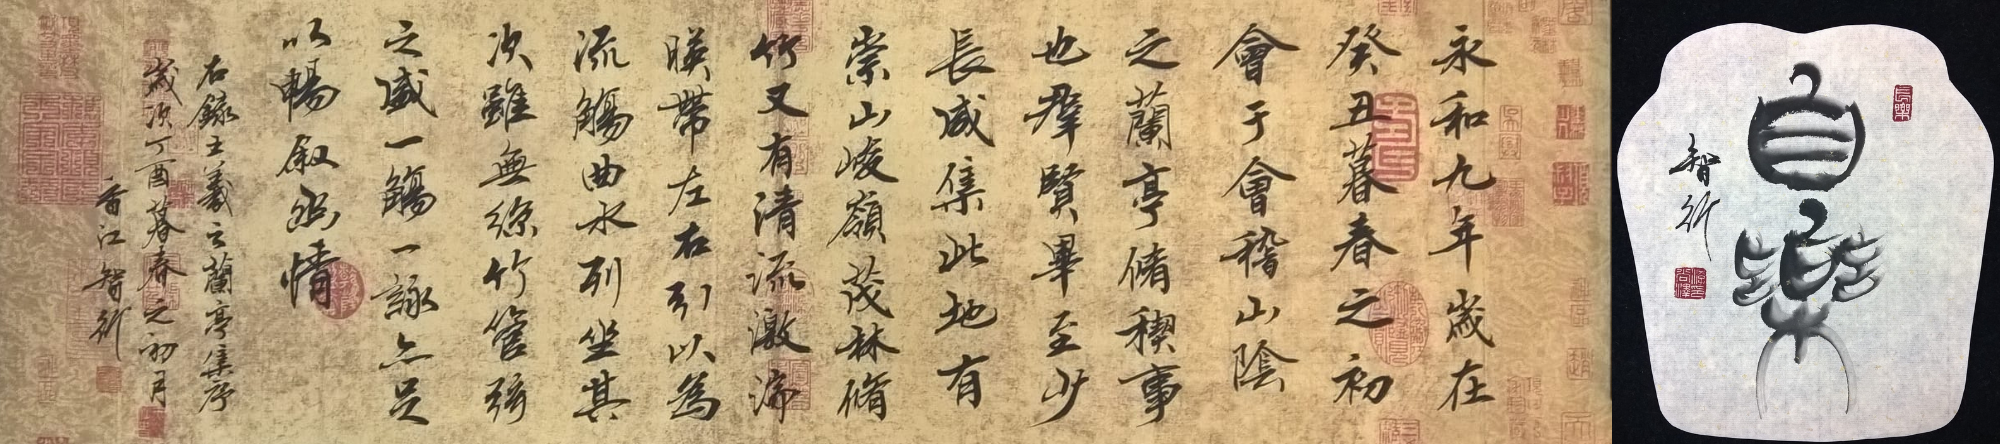 永和九年歲在
癸丑暮春之初
會于會稽山陰
之蘭亭脩稧事
也羣賢畢至少
長咸集此地有
崇山峻嶺茂林脩
竹又有清流激湍
暎帶左右引以為
流觴曲水列坐其
次雖無絲竹管弦
之盛一觴一詠亦足
以暢敘幽情
右錄王羲之蘭亭集序
歲次丁酉暮春之初月
香江智行
長樂
自樂
智行